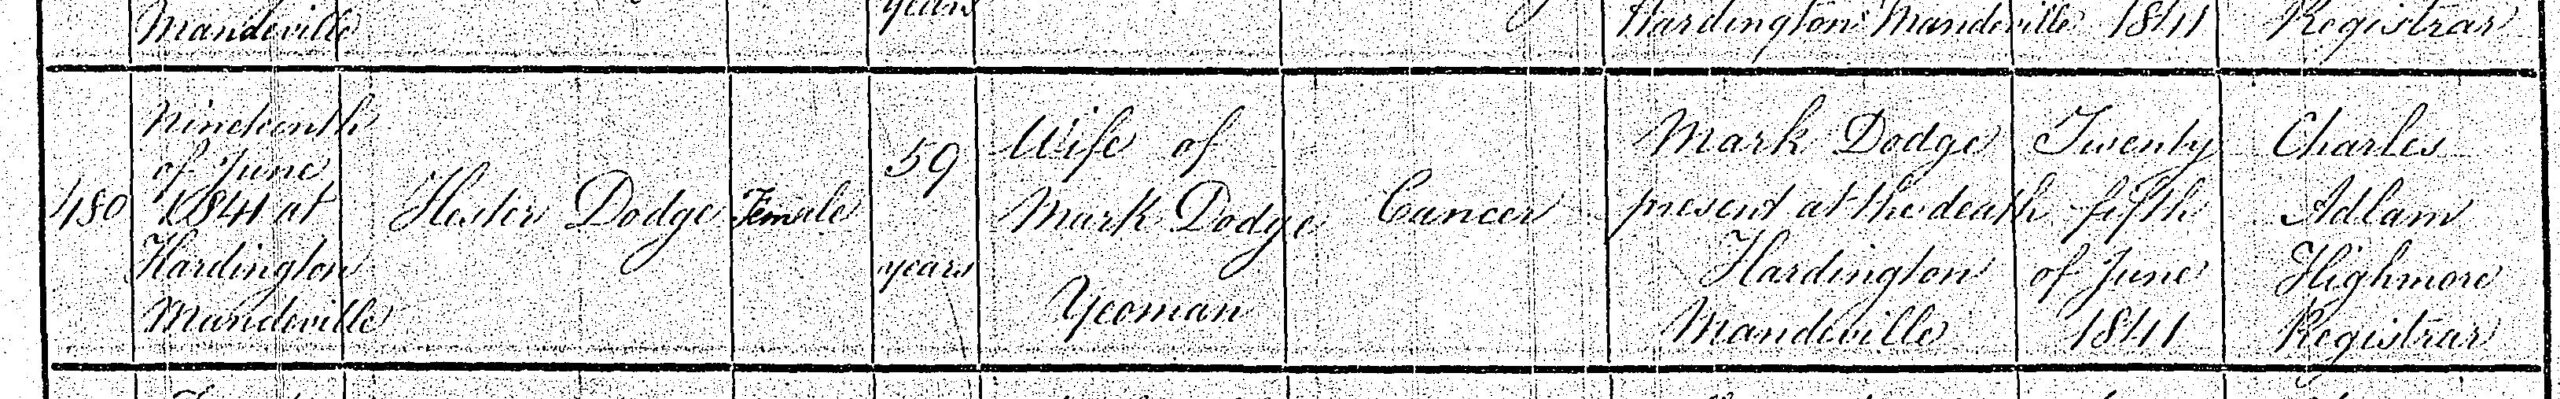 Mandeville
years
Hardington Mandeville
1841
Registrar
480
Nineteenth
of June
1841 at
Hardington
Mandeville
Hester Dodge
Female
59
years
Wife of
Mark Dodge
Yeoman
Cancer
Mark Dodge
present at the death
Hardington
Mandeville
Twenty
fifth
of June
1841
Charles
Adlam
Highmore
Registrar